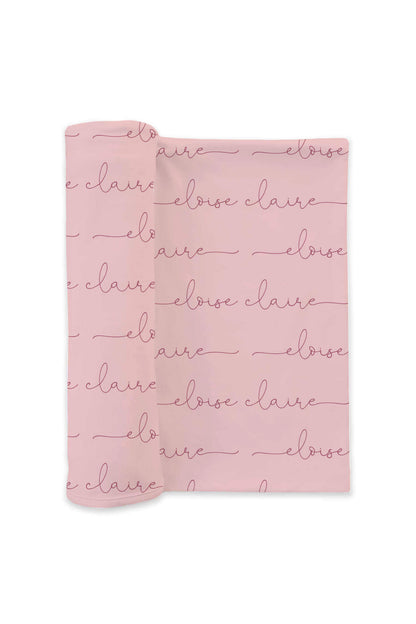 elo aire eloise
e claire eloise claire
elo aire eloise
e claire eloise claire
elo aire eloise
e claire eloise claire
elo aire eloise
se claire eloise claire